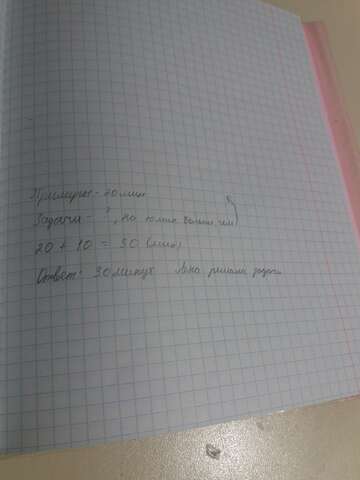 Примеры - 20 мин
Задачи - ?, на 10 мин больше чем
20 + 10 = 30 (мин)
Ответ: 30 минут Аня решала задачи